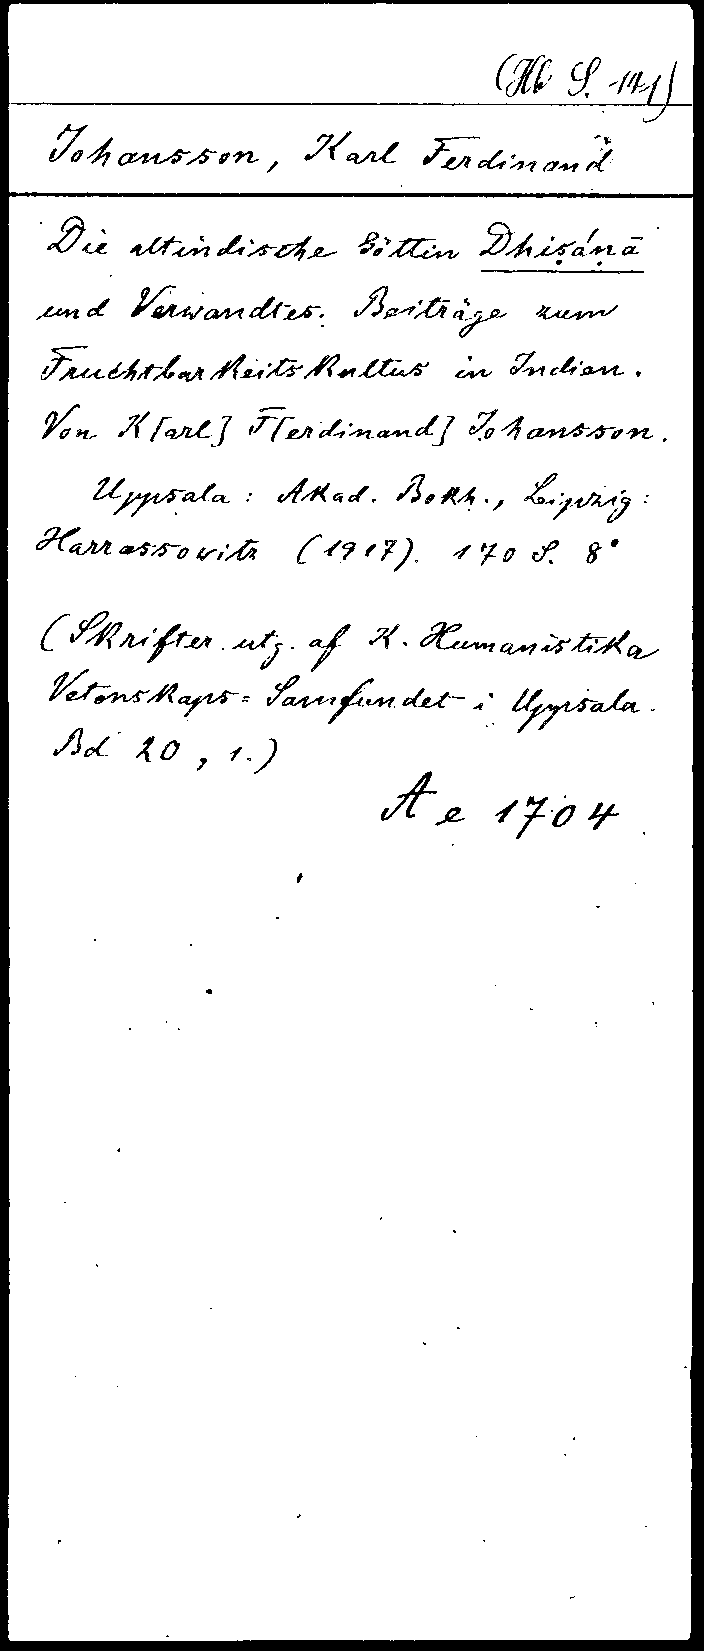 (Hb S. 141)
Johansson, Karl Ferdinand
Die altindische Göttin Dhiṣáṇā
und Verwandtes. Beiträge zum
Fruchtbarkeitskultus in Indien.
Von K[arl] F[erdinand] Johansson.
Uppsala: Akad. Bokh., Leipzig:
Harrassowitz (1917). 170 S. 8°
(Skrifter utg. af K. Humanistika
Vetenskaps=Samfundet i Uppsala.
Bd 20, 1.)
Ae 1704